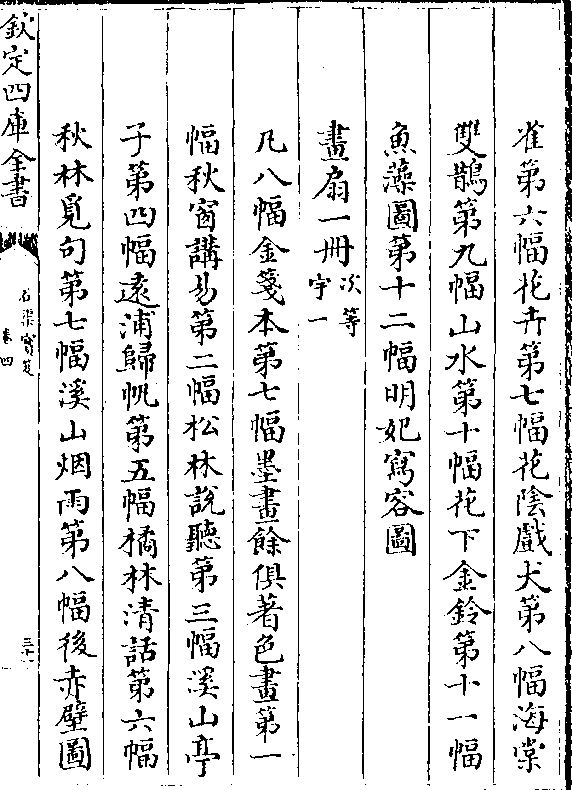 雀第六幅花卉第七幅花陰戲犬第八幅海棠
雙鵲第九幅山水第十幅花下金鈴第十一幅
魚藻圖第十二幅明妃寫容圖
畫扇一冊次等
宇一
凡八幅金箋本第七幅墨畫餘俱著色畫第一
幅秋窗講易第二幅松林說聽第三幅溪山亭
子第四幅遠浦歸帆第五幅橘林清話第六幅
秋林覓句第七幅溪山烟雨第八幅後赤壁圖
欽定四庫全書
石渠寶笈
卷四